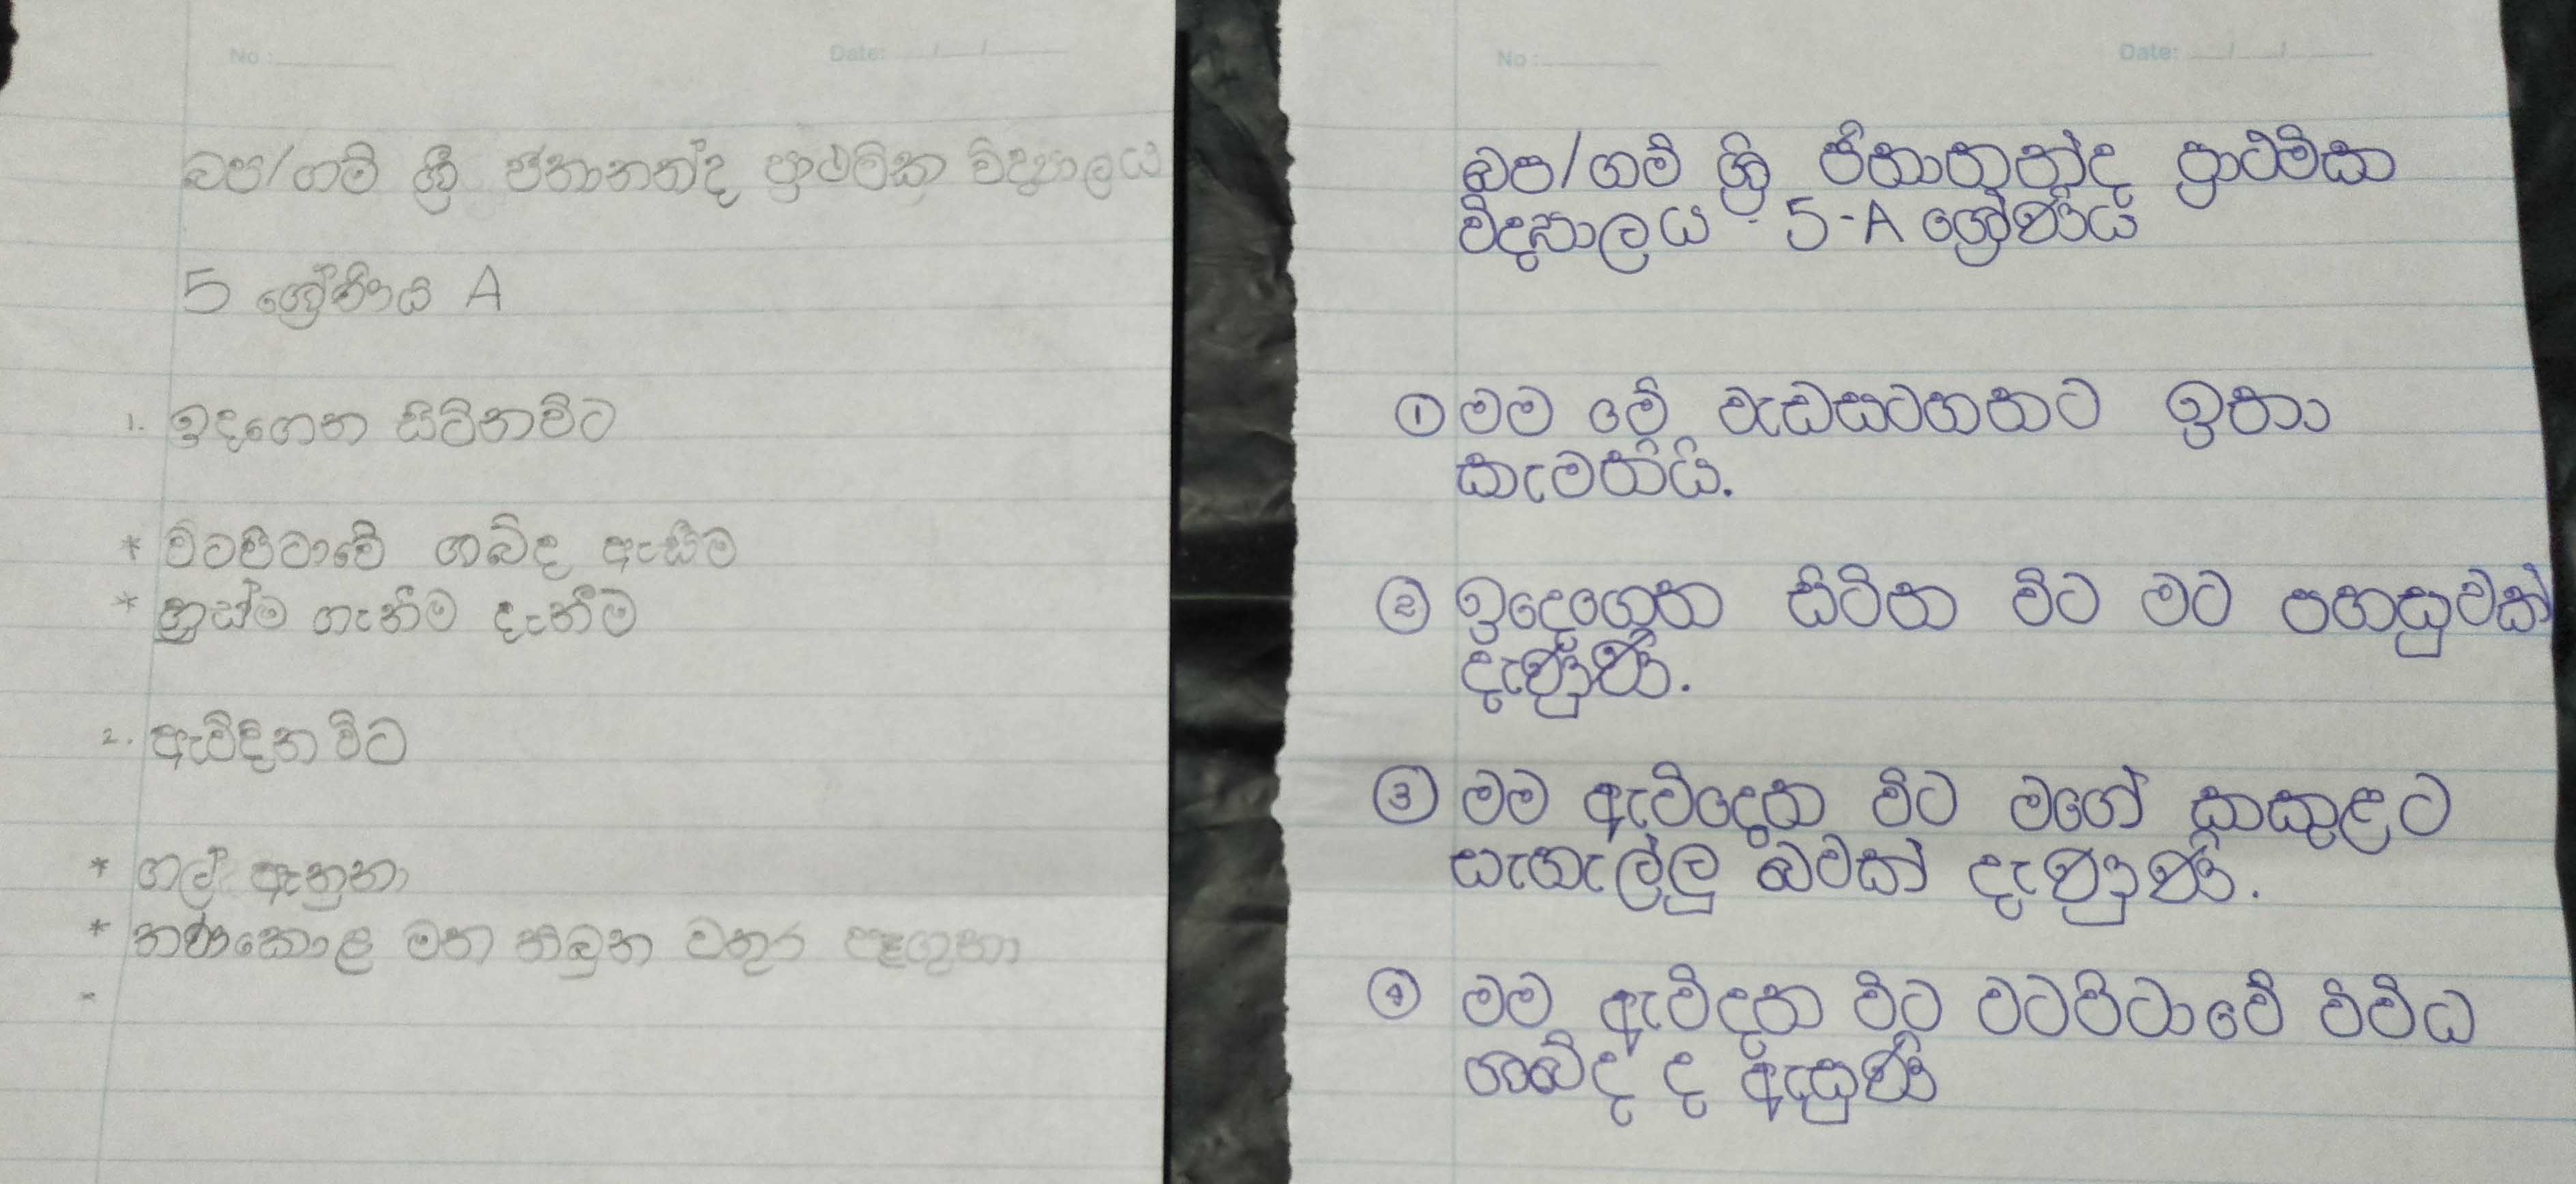 No : Date: / /
බප/ගම් ශ්‍රී ජිනානන්ද ප්‍රාථමික විද්‍යාලය
5 ශ්‍රේණිය A
1. ඉදගෙන සිටිනවිට
* වටපිටාවේ ශබ්ද ඇසීම
* හුස්ම ගැනීම දැනීම
2. ඇවිදින විට
* ගල් ඇනුනා
* තණකොළ මත තිබුන වතුර පෑගුනා
-
No : Date: / /
බප/ගම් ශ්‍රී ජිනානන්ද ප්‍රාථමික
විද්‍යාලය - 5-A ශ්‍රේණිය
① මම මේ වැඩසටහනට ඉතා
කැමතියි.
② ඉදෙගෙන සිටින විට මට පහසුවක්
දැණුණි.
③ මම ඇවිදෙන විට මගේ කකුළට
සැහැල්ලු බවක් දැණුණි.
④ මම ඇවිදන විට වටපිටාවේ විවිධ
ශබ්ද ද ඇසුණි